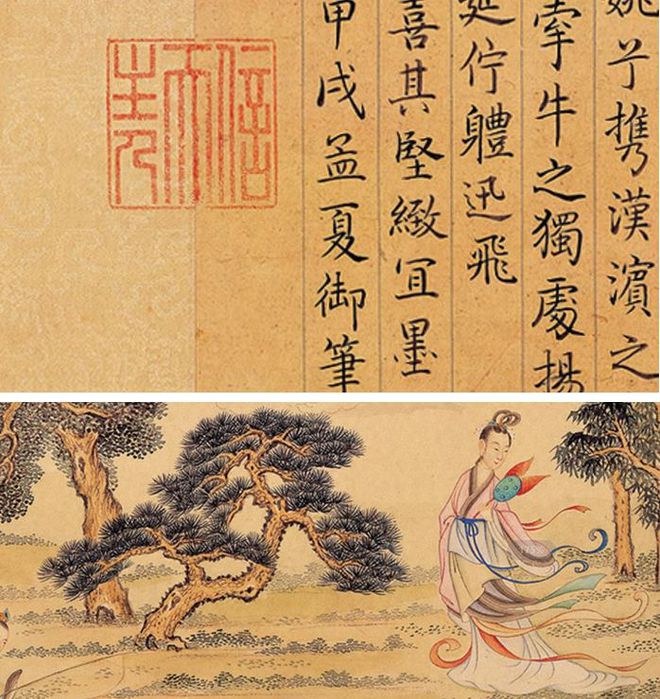 兮携漢濱之
牽牛之獨處揚
延佇軆迅飛
喜其堅緻冝墨
甲戌孟夏御筆
信天主人